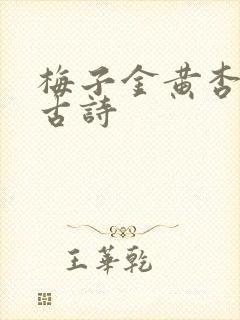 梅子金黄杏
古詩
王華乾